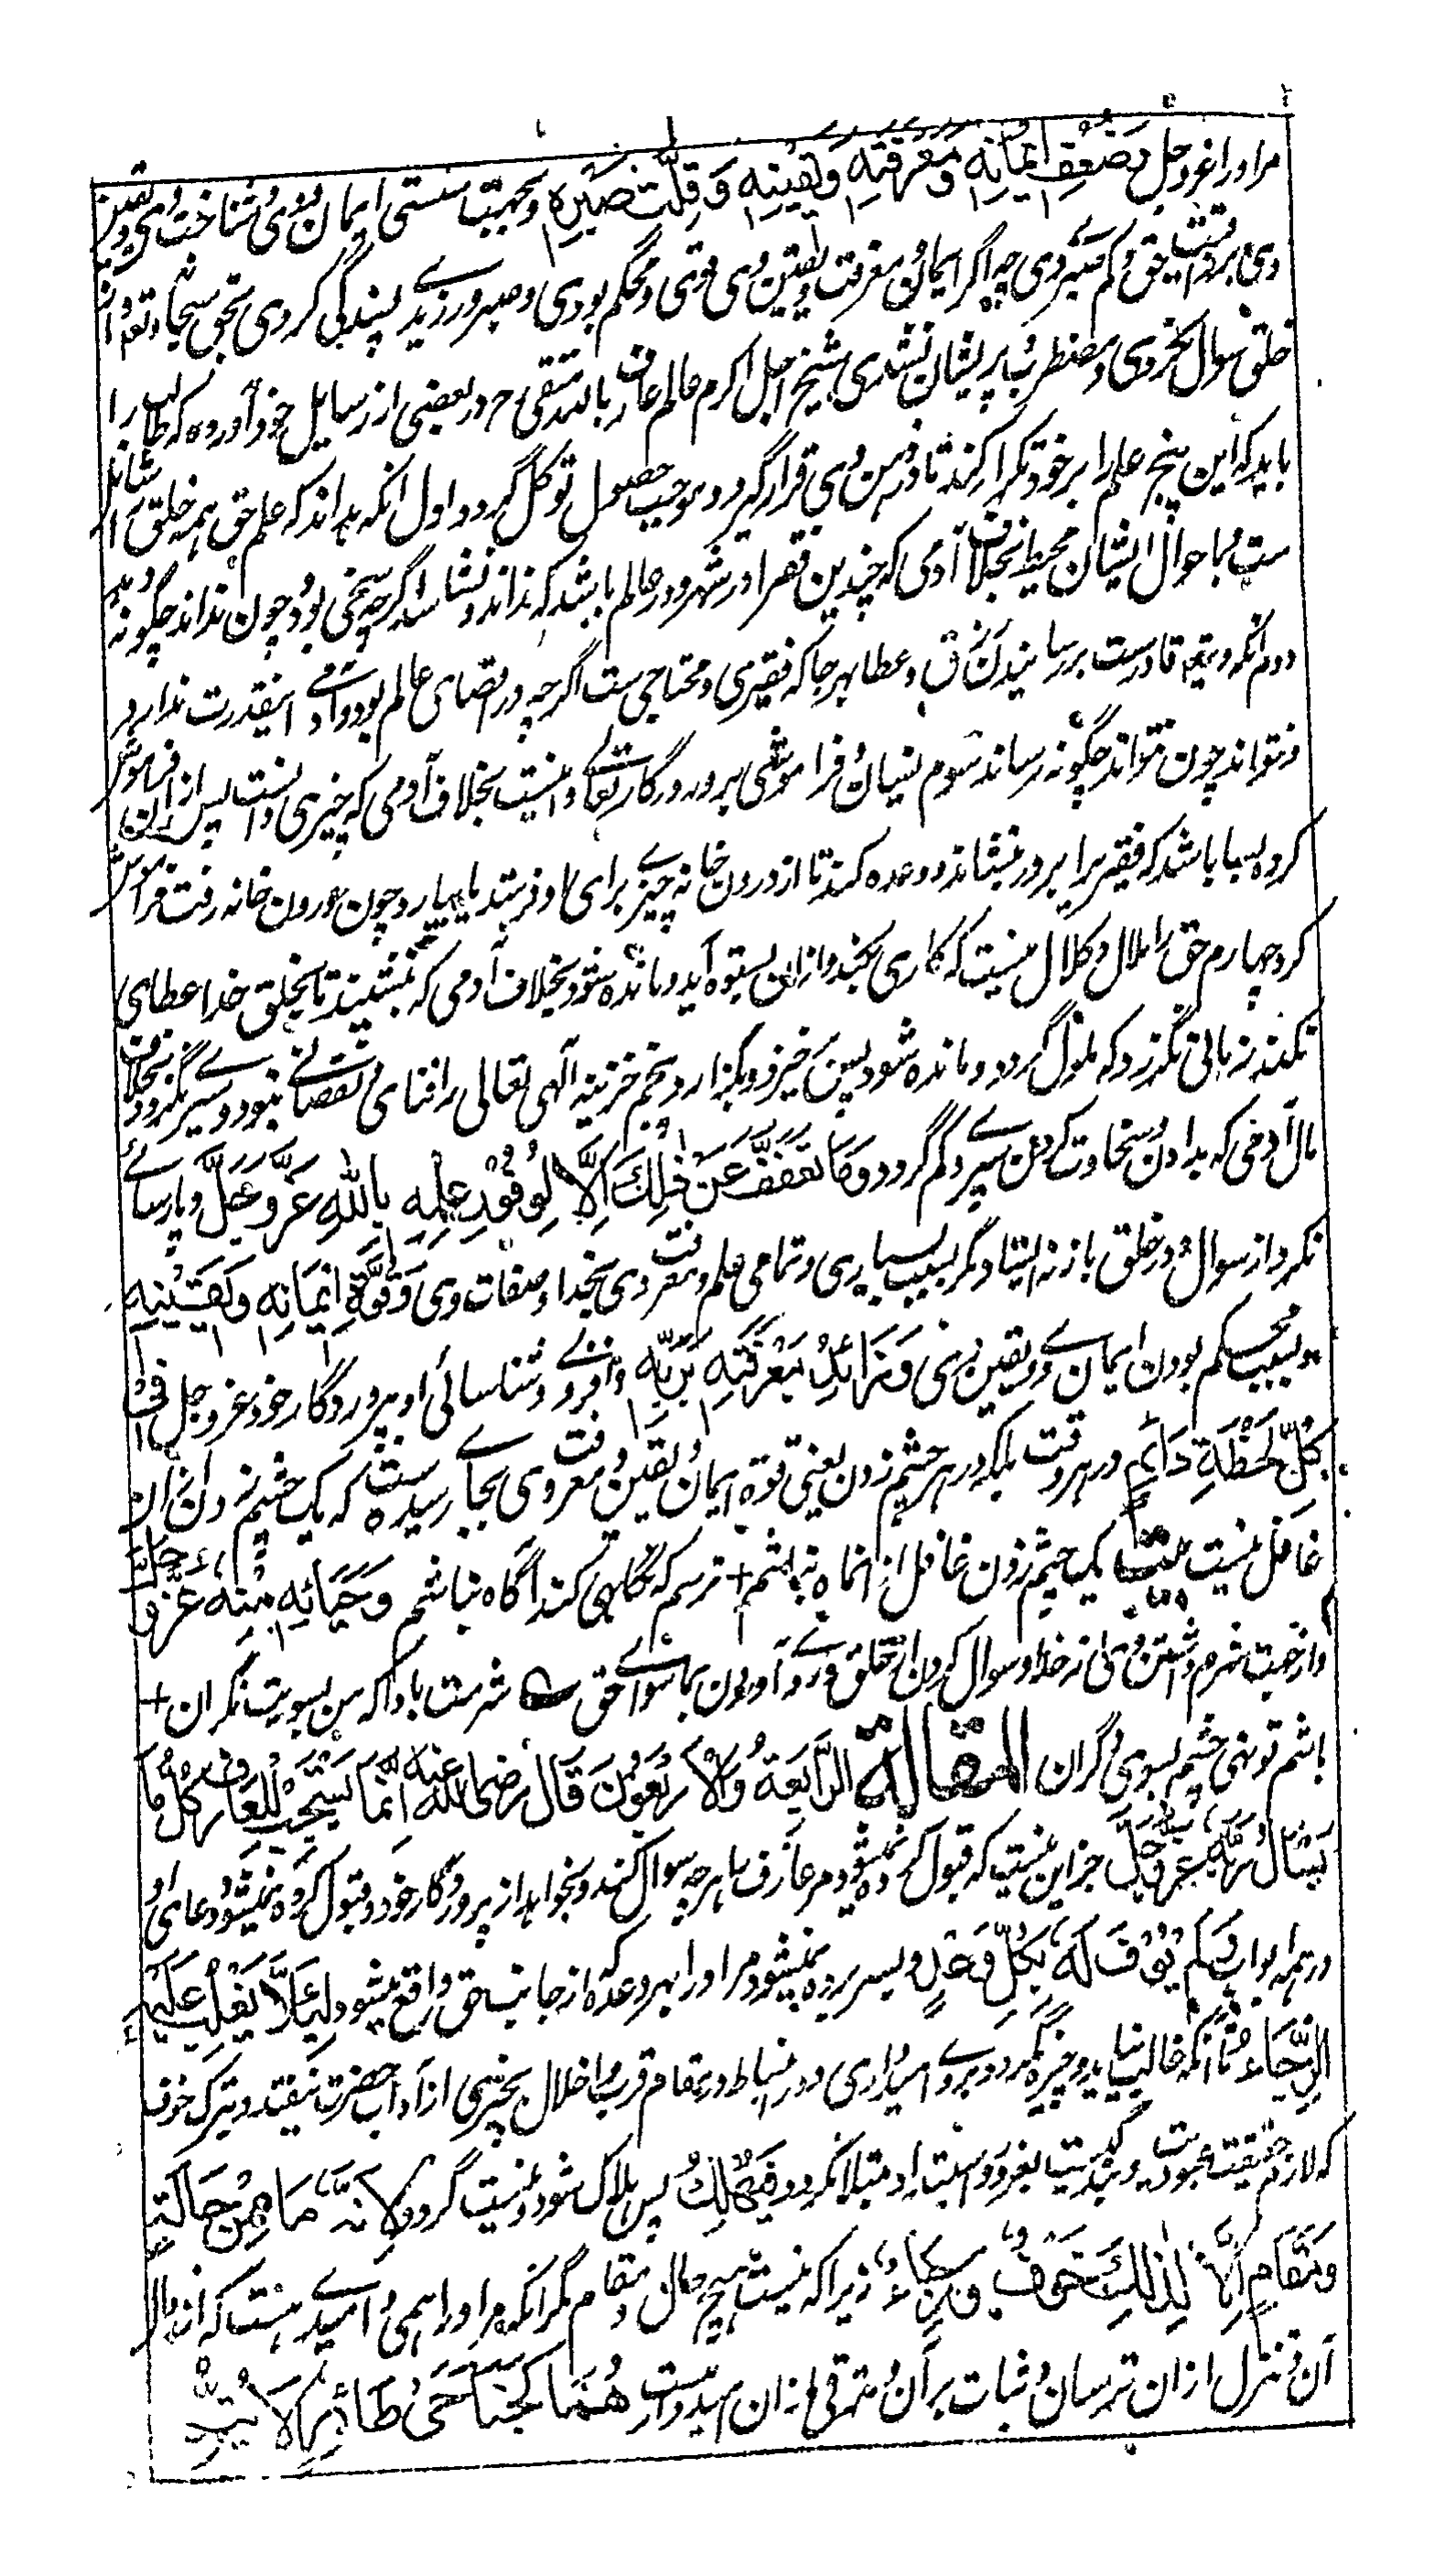 مر او را عز و جل وَضَعْفِ اِیْمَانِهِ وَمَعْرِفَتِهِ وَیَقِیْنِهِ وَقِلَّتِ صَبْرِهِ و بجهت سستی ایمان وی و شناخت وی و یقین
وی بربوبیت حق و کم صبری وی چه اگر ایمان و معرفت و یقین وی قوی و محکم بودی و صبر ورزیدی بسندگی کردی بحق سبحانه و تعالی و از
خلق سوال نکردی و مضطرب و پریشان نشدی شیخ اجل اکرم عالم عارف بالله متقی رح در بعضی از رسایل خود آورده که طالب را
باید که این پنج علم را بر خود تکرار کند تا در ذهن وی قرار گیرد و موجب حصول توکل گردد اول انکه بداند که علم حق همه خلق را شامل
ست و باحوال ایشان محیط بخلاف آدمی که چندین فقرا در شهر و در عالم باشد که نداند و نشناسد اگرچه سخی بود چون نداند چگونه دهد
دوم انکه ویتعالی قادرست بر رسانیدن رزق و عطا بهر جا که فقیری و محتاجی ست اگرچه در اقصای عالم بود و آدمی اینقدرت ندارد
و نتواند چون نتواند چگونه رساند سوم نسیان و فراموشی پروردگار تعالی را نیست بخلاف آدمی که چیزی دانست پس ازان فراموش
کرد بسا باشد که فقیر را بر در بنشاند و وعده کند تا از درون خانه چیزی برای او فرستد یا بیارد چون درون خانه رفت فراموش
کرد چهارم حق را ملال و کلال نیست که کاری بکند و ازان بستوه آید و مانده شود بخلاف آدمی که بنشیند تا بخلق خدا عطای
بکند زمانی نگذرد که ملول گردد و مانده شود پس خیزد و بگذارد پنجم خزینه آلهی تعالی را فنای و نقصانی نبود و سپری نگردد بخلاف
مال آدمی که بدادن و سخاوت کردن سپرد و کم گردد وَمَا تَعَفَّفَ عَنْ ذٰلِكَ اِلَّا لِوُفُوْرِ عِلْمِهِ بِاللهِ عَزَّ وَجَلَّ و پارسائی
نکرد از سوال و در خلق باز نه ایستاد مگر بسبب بسیاری و تمامی علم و معرفت وی بخدا و صفات وی وَقُوَّةِ اِیْمَانِهِ وَیَقِیْنِهِ
و بسبب محکم بودن ایمان وی و یقین وی وَتَزَایُدِ مَعْرِفَتِهِ بِرَبِّهِ و افزونی و شناسائی او بپروردگار خود عز و جل فِیْ
كُلِّ لَحْظَةٍ دَائِمٍ در هر وقت بلکه در هر چشم زدن یعنی قوة ایمان و یقین و معرفت وی بجائے رسیده ست که یک چشم زدن ازان
غافل نیست بیت یک چشم زدن غافل ازان ماه نباشم + ترسم که نگاهی کند آگاه نباشم وَحَیَائِهِ مِنْهُ عَزَّ وَجَلَّ
و از جهت شرم داشتن وی از خدا و سوال کردن از خلق و رو آوردن بماسوای حق سه شرمت بادا که من بسویت نگران +
باشم تو نهی چشم بسوی دگران المقالة الرَّابِعَةُ وَالْاَرْبَعُوْنَ قَالَ رضی الله عنه اِنَّمَا یُسْتَجَبُ لِلْعَارِفِ كُلُّ مَا
یَسْاَلُ رَبَّهُ عَزَّ وَجَلَّ جز این نیست که قبول کرده نمیشود مر عارف را هر چه سوال کند و بخواهد از پروردگار خود و قبول کرده نمیشود دعای او
در همه ابواب وَلَمْ یُوْفَ لَهُ بِكُلِّ وَعْدٍ و بسر برده نمیشود مر او را بهر وعده که از جانب حق واقع میشود لِئَلَّا یَغْلِبَ عَلَیْهِ
الرَّجَاءُ تا آنکه غالب نیاید و چیره نگردد بروے امیدواری و در انبساط و بمقام قرب و اخلال بچیزی از آداب حضرت نیفتد و بترک خوف
که لازم حقیقت عبودیت و بندگیست بغرور و استبداد مبتلا نگردد فَیَهْلِكَ پس هلاک شود و نیست گردد لِاَنَّهُ مَا مِنْ حَالَةٍ
وَمَقَامٍ اِلَّا لِذٰلِكَ خَوْفٌ وَرَجَاءٌ زیرا که نیست هیچ حال و مقام مگر انکه مر او را بیمی و امیدے هست که از زوال
آن و تنزل ازان ترسان و ثبات بر آن و ترقی ازان امیدوارست هُمَا كَجَنَاحَیْ طَائِرٍ لَا یَتِمُّ